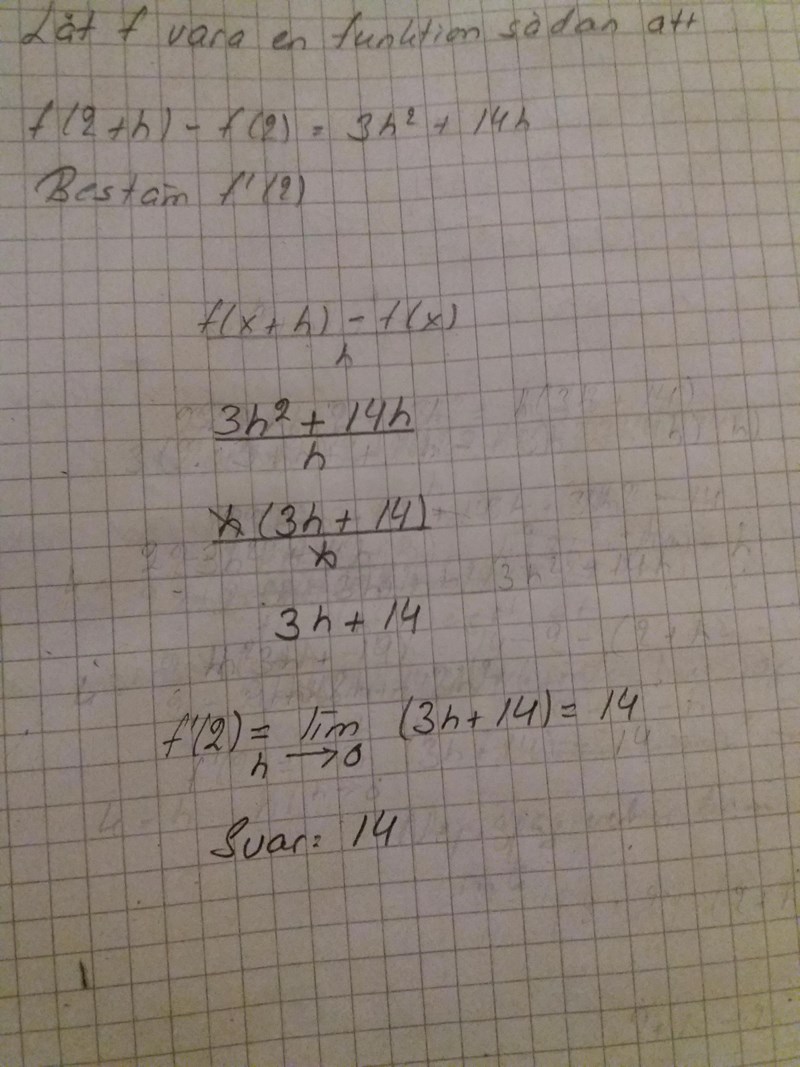 Låt f vara en funktion sådan att
f(2+h) - f(2) = 3h² + 14h
Bestäm f'(2)
f(x+h) - f(x)
h
3h² + 14h
h
h(3h + 14)
h
3h + 14
f'(2) = lim (3h+14) = 14
h → 0
Svar: 14